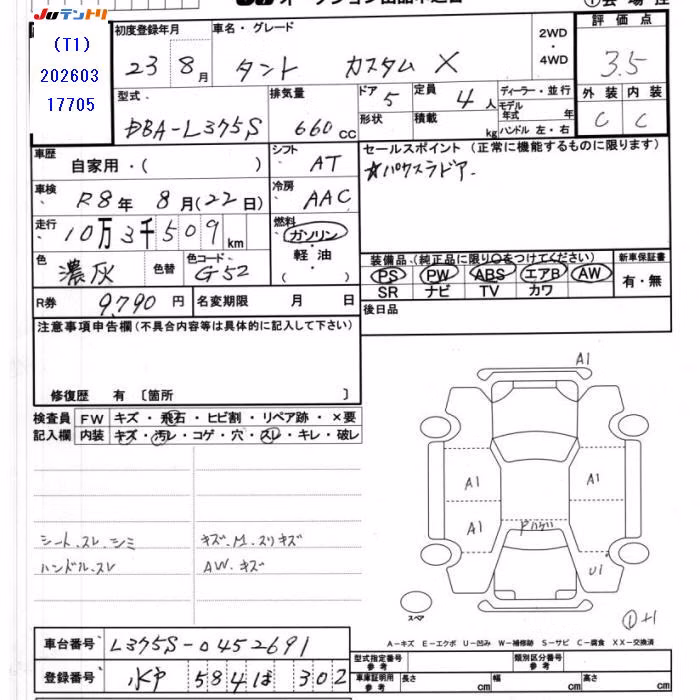 Juテントリ
オークション出品申込書
(T1)
202603
17705
初度登録年月
23 8月
車名・グレード
タント カスタム X
2WD
・
4WD
評価点
3.5
外装 内装
C C
型式
DBA-L375S
排気量
660cc
ドア 5
形状
定員 4人
積載 kg
ディーラー・並行
モデル年式 年
ハンドル 左・右
車歴
自家用・( )
シフト AT
セールスポイント (正常に機能するものに限ります)
☆パワースラドア.
車検 R8年 8月(22日)
冷房 AAC
走行 10万3千509km
燃料
ガソリン
・
軽油
・
( )
色 濃灰 色替
色コード G52
装備品 (純正品に限り○をつけてください)
PS PW ABS エアB AW
SR ナビ TV カワ
新車保証書
有・無
R券 9,790円
名変期限 月 日
後日品
注意事項申告欄 (不具合内容等は具体的に記入して下さい)
修復歴 有 〔箇所 〕
検査員記入欄
FW キズ・飛石・ヒビ割・リペア跡・×要
内装 キズ・汚レ・コゲ・穴・スレ・キレ・破レ
シート.スレ.シミ
ハンドル.スレ
キズ.M.スリキズ
AW.キズ
A1
A1
A1
A1
U1
スペア
A-キズ E-エクボ U-凹み W-補修跡 S-サビ C-腐食 XX-交換済
車台番号 L375S-0452691
登録番号 水戸 584 ほ 302
型式指定番号 参考
類別区分番号 参考
車庫証明用 参考
長さ cm
幅 cm
高さ cm